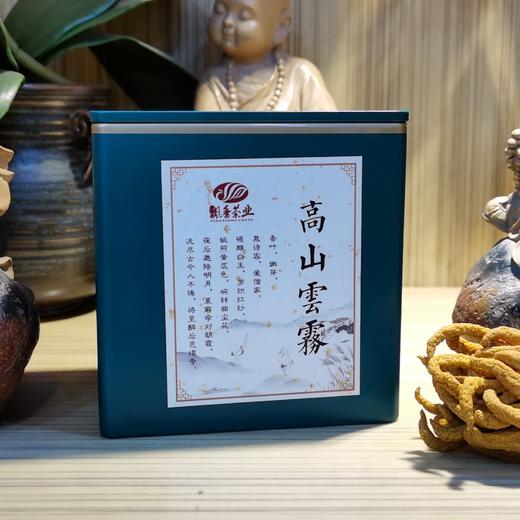 高山雲霧
飘香茶业
PIAOXIANG CHAYE
香叶，嫩芽，
慕诗客，爱僧家。
碾雕白玉，罗织红纱。
铫煎黄蕊色，碗转曲尘花。
夜后邀陪明月，晨前命对朝霞。
洗尽古今人不倦，将至醉后岂堪夸。